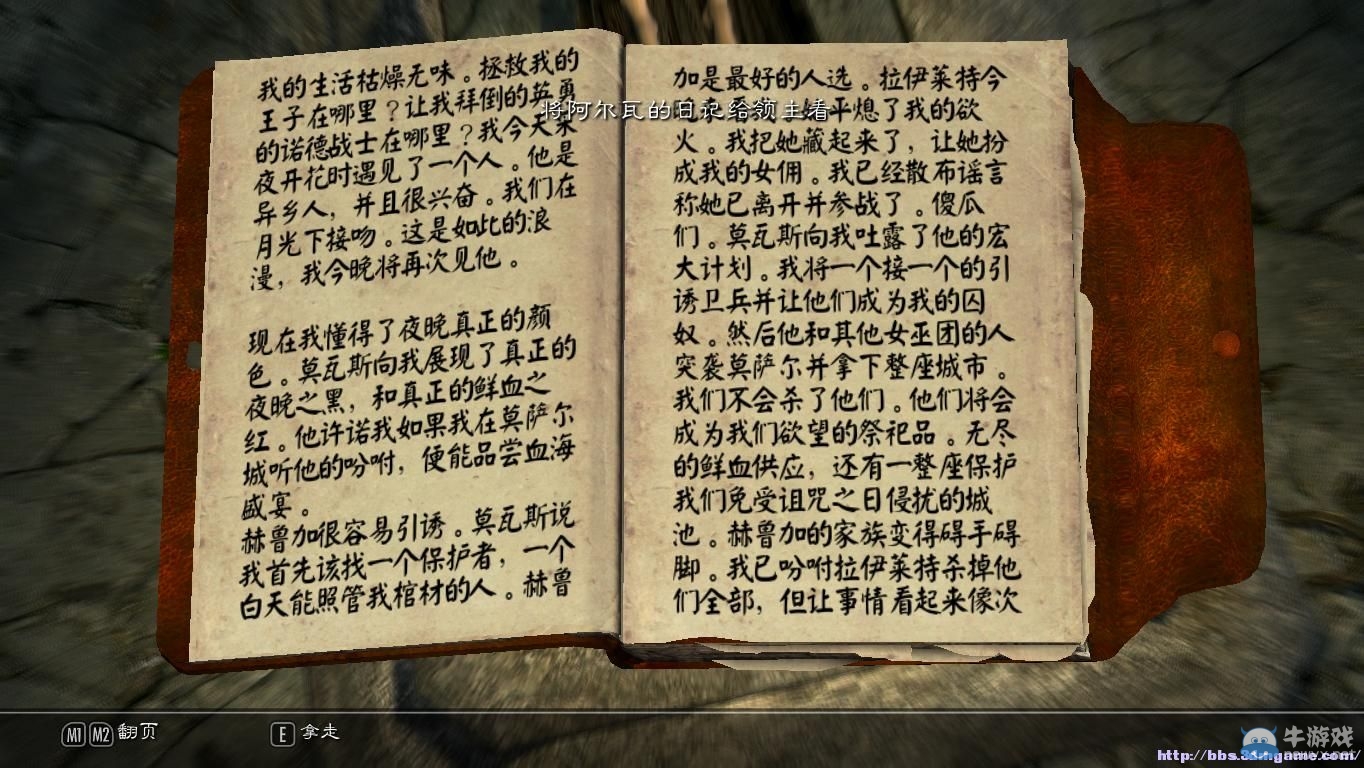 我的生活枯燥无味。拯救我的
王子在哪里？让我拜倒的英勇
的诺德战士在哪里？我今天采
夜开花时遇见了一个人。他是
异乡人，并且很兴奋。我们在
月光下接吻。这是如此的浪
漫，我今晚将再次见他。
现在我懂得了夜晚真正的颜
色。莫瓦斯向我展现了真正的
夜晚之黑，和真正的鲜血之
红。他许诺我如果我在莫萨尔
城听他的吩咐，便能品尝血海
盛宴。
赫鲁加很容易引诱。莫瓦斯说
我首先该找一个保护者，一个
白天能照管我棺材的人。赫鲁
加是最好的人选。拉伊莱特今
平熄了我的欲
火。我把她藏起来了，让她扮
成我的女佣。我已经散布谣言
称她已离开并参战了。傻瓜
们。莫瓦斯向我吐露了他的宏
大计划。我将一个接一个的引
诱卫兵并让他们成为我的囚
奴。然后他和其他女巫团的人
突袭莫萨尔并拿下整座城市。
我们不会杀了他们。他们将会
成为我们欲望的祭祀品。无尽
的鲜血供应，还有一整座保护
我们免受诅咒之日侵扰的城
池。赫鲁加的家族变得碍手碍
脚。我已吩咐拉伊莱特杀掉他
们全部，但让事情看起来像次
将阿尔瓦的日记给领主看
M1 M2 翻页
E 拿走
牛游戏
http://bbs.3dmgame.com/